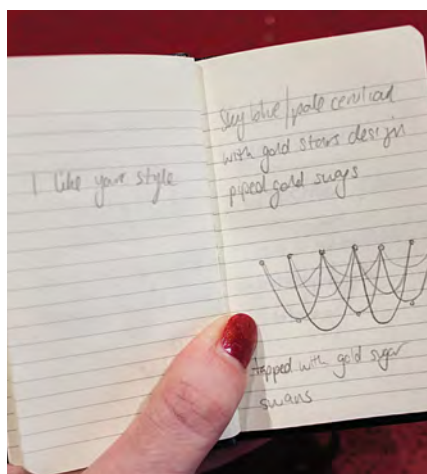 I like your style
Sky blue/pale cerulean
with gold stars design
piped gold swags
topped with gold sugar
swans